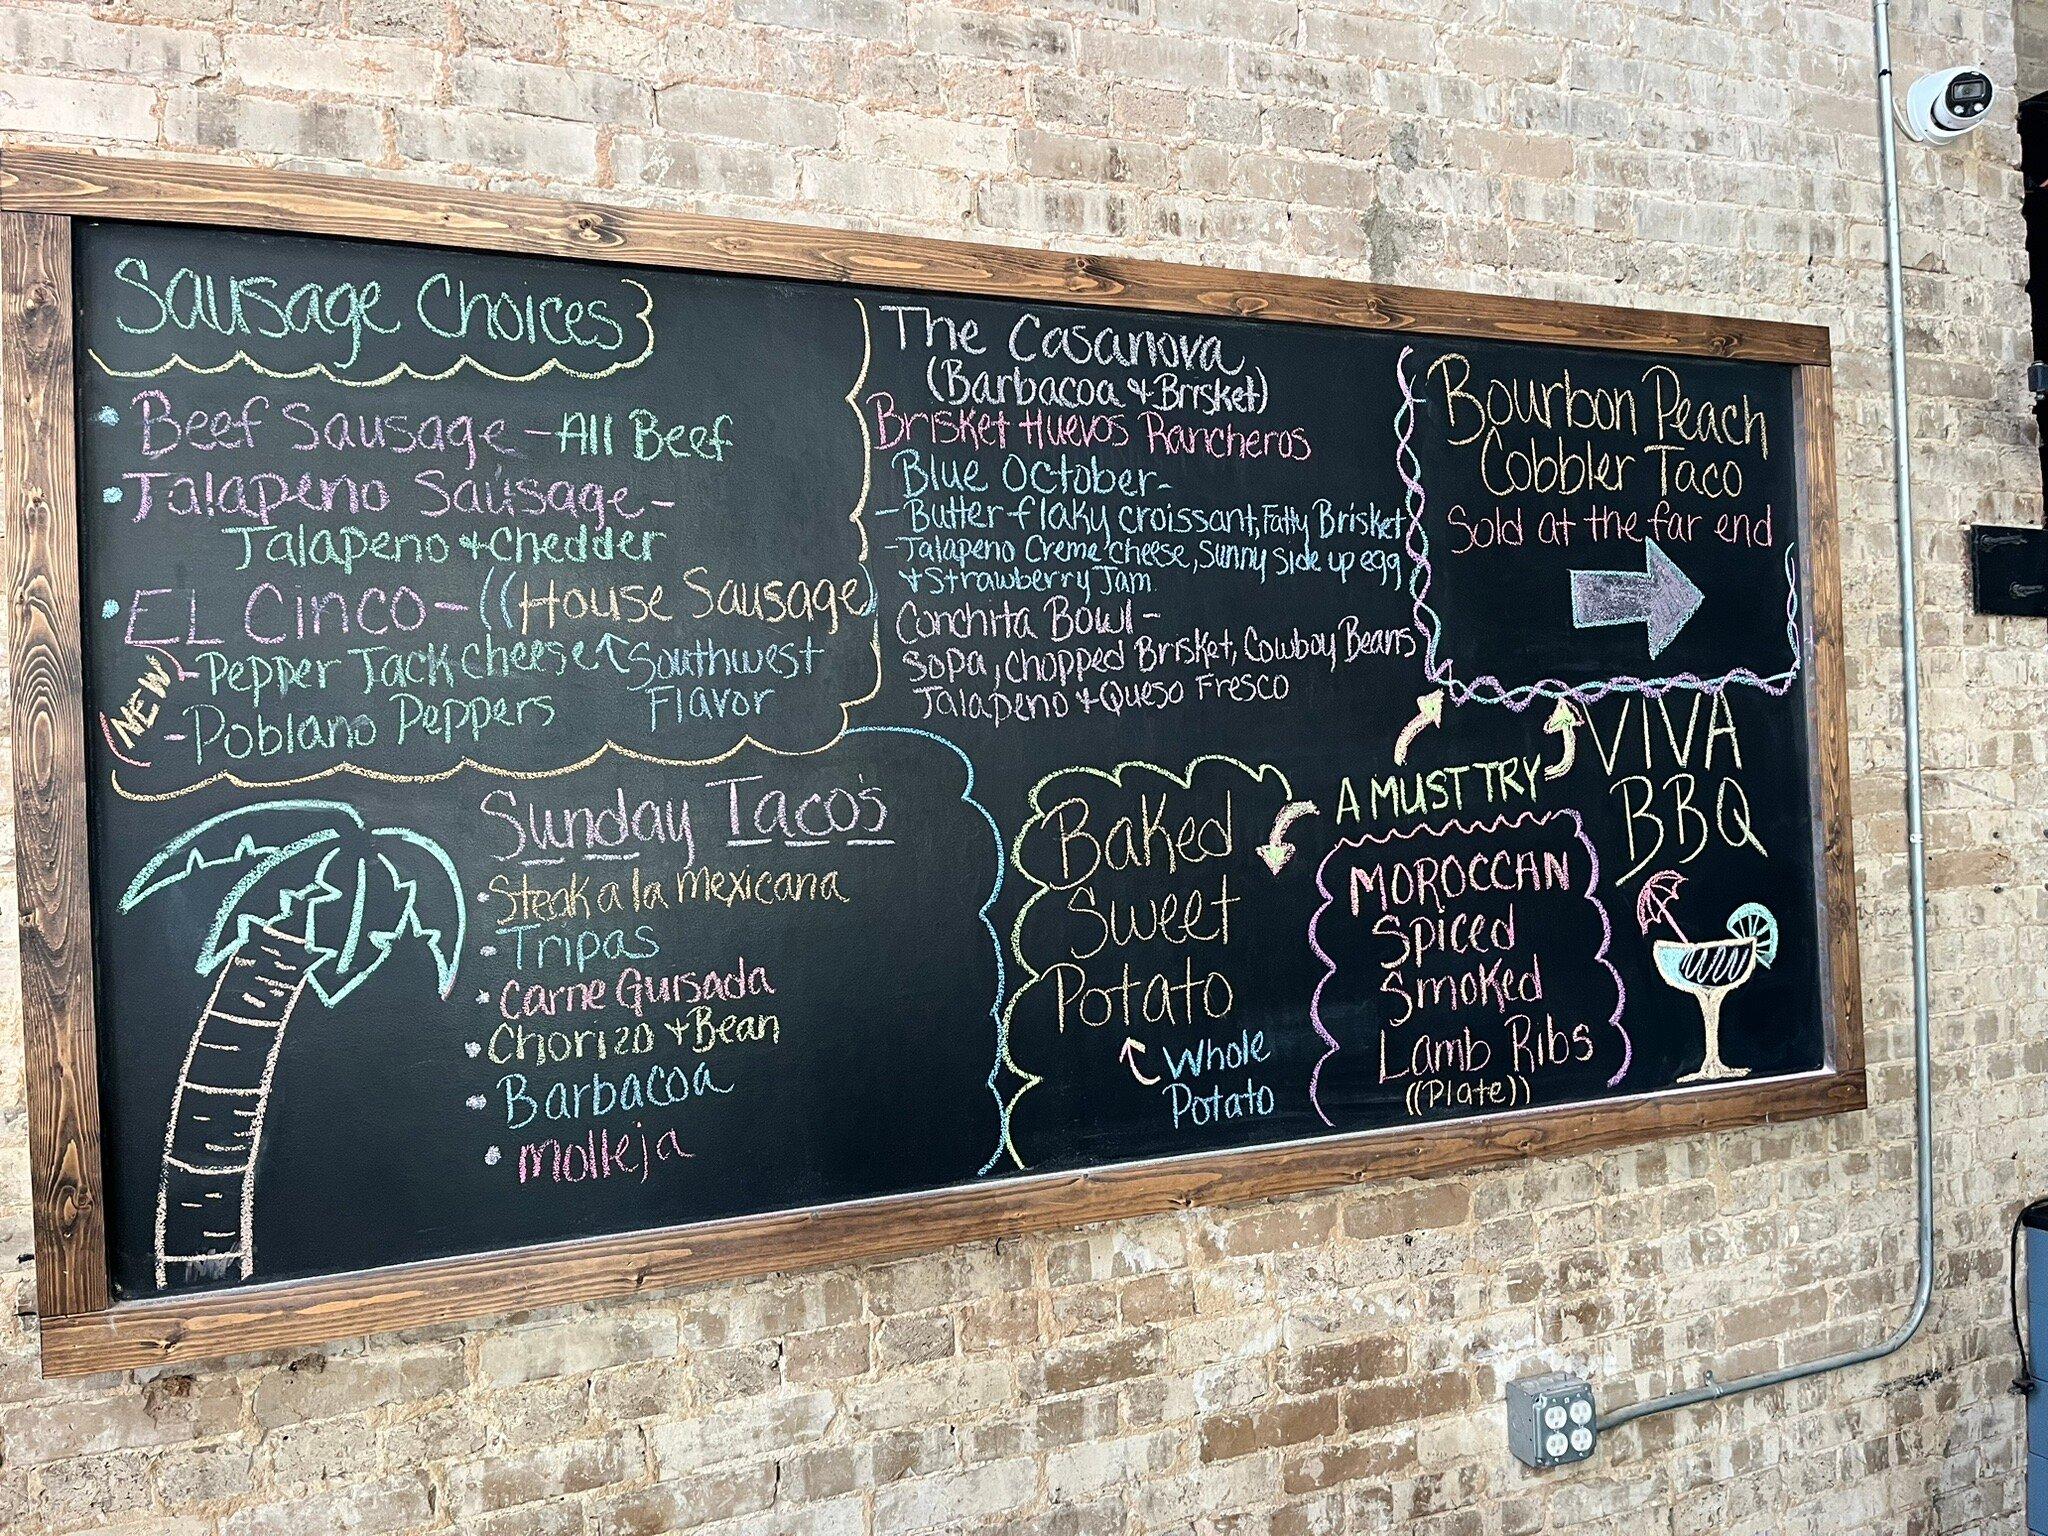 Sausage Choices
Beef Sausage - All Beef
Jalapeno Sausage -
Jalapeno + Chedder
EL Cinco - ((House Sausage)
NEW
- Pepper Jack cheese
Southwest
Flavor
- Poblano Peppers
Sunday Taco's
Steak a la mexicana
Tripas
Carne Guisada
Chorizo + Bean
Barbacoa
Molleja
The Casanova
(Barbacoa + Brisket)
Brisket Huevos Rancheros
Blue October -
- Butter flaky croissant, Fatty Brisket
- Jalapeno Creme cheese, Sunny side up egg
+ Strawberry Jam
Conchita Bowl -
Sopa, Chopped Brisket, Cowboy Beans
Jalapeno + Queso Fresco
Bourbon Peach
Cobbler Taco
Sold at the far end
A MUST TRY
VIVA
BBQ
Baked
Sweet
Potato
Whole
Potato
MOROCCAN
Spiced
Smoked
Lamb Ribs
((Plate))